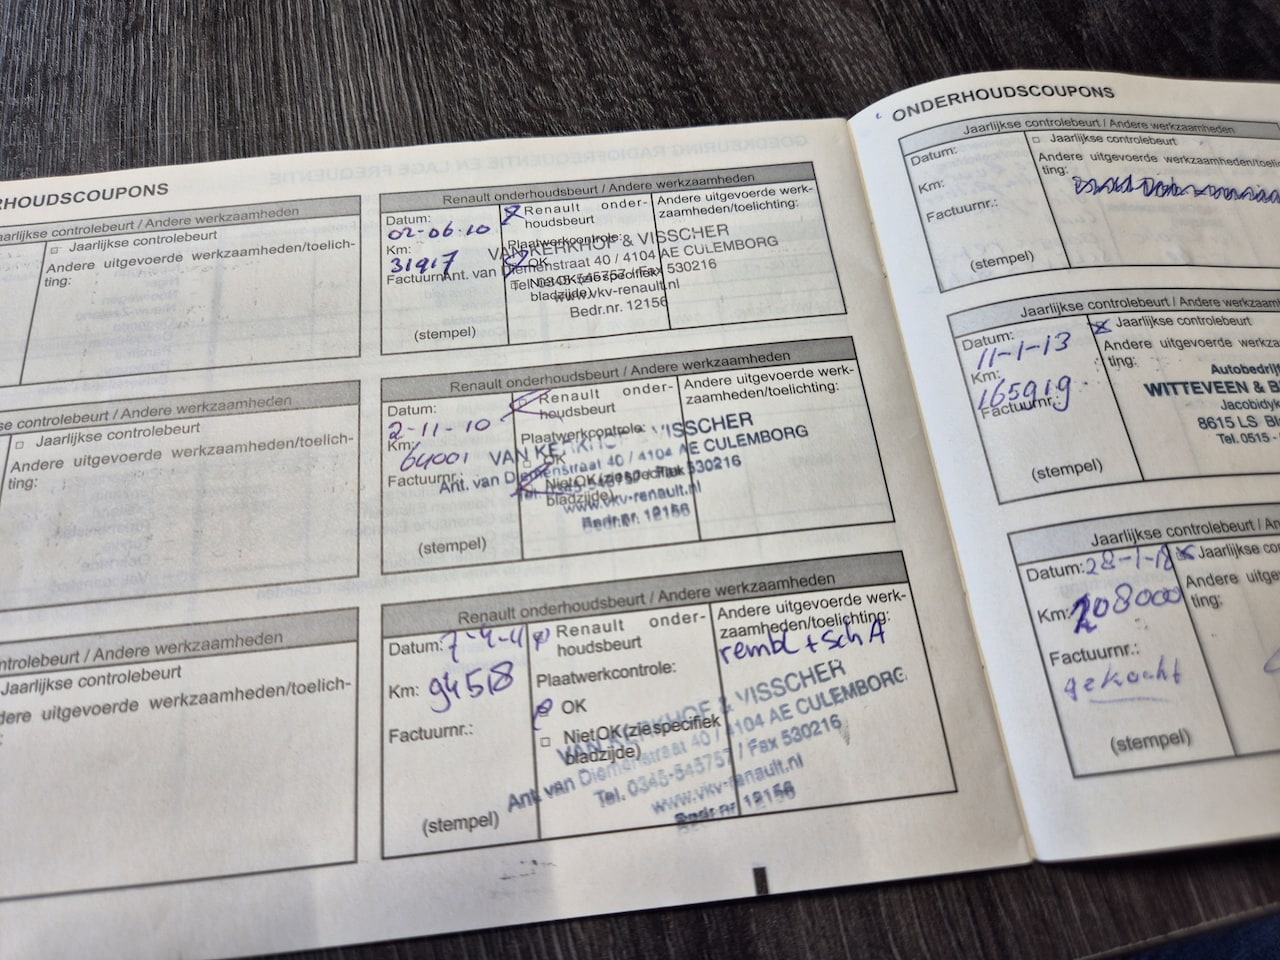 RHOUDSCOUPONS
aarlijkse controlebeurt / Andere werkzaamheden
Jaarlijkse controlebeurt
Andere uitgevoerde werkzaamheden/toelich-
ting:
se controlebeurt / Andere werkzaamheden
Jaarlijkse controlebeurt
Andere uitgevoerde werkzaamheden/toelich-
ting:
ntrolebeurt / Andere werkzaamheden
Jaarlijkse controlebeurt
dere uitgevoerde werkzaamheden/toelich-
:
GOEDKEURING RADIOFREQUENTIE EN LAGE FREQUENTIE
Renault onderhoudsbeurt / Andere werkzaamheden
Datum:
02-06-10
Km:
31917
Factuurnr.:
(stempel)
Renault onder-
houdsbeurt
Plaatwerkcontrole:
OK
Niet OK (zie specifiek
bladzijde)
Andere uitgevoerde werk-
zaamheden/toelichting:
VAN KERKHOF & VISSCHER
Ant. van Diemenstraat 40 / 4104 AE CULEMBORG
Tel. 0345-545757 / Fax 530216
www.vkv-renault.nl
Bedr.nr. 12156
Renault onderhoudsbeurt / Andere werkzaamheden
Datum:
2-11-10
Km:
64001
Factuurnr.:
(stempel)
Renault onder-
houdsbeurt
Plaatwerkcontrole:
OK
Niet OK (zie specifiek
bladzijde)
Andere uitgevoerde werk-
zaamheden/toelichting:
VAN KERKHOF & VISSCHER
Ant. van Diemenstraat 40 / 4104 AE CULEMBORG
Tel. 0345-545757 / Fax 530216
www.vkv-renault.nl
Bedr.nr. 12156
Renault onderhoudsbeurt / Andere werkzaamheden
Datum: 7-4-11
Km: 94518
Factuurnr.:
(stempel)
Renault onder-
houdsbeurt
Plaatwerkcontrole:
OK
Niet OK (zie specifiek
bladzijde)
Andere uitgevoerde werk-
zaamheden/toelichting:
rembl + sch A
VAN KERKHOF & VISSCHER
Ant. van Diemenstraat 40 / 4104 AE CULEMBORG
Tel. 0345-545757 / Fax 530216
www.vkv-renault.nl
Bedr.nr. 12156
ONDERHOUDSCOUPONS
Jaarlijkse controlebeurt / Andere werkzaamheden
Datum:
Km:
Factuurnr.:
(stempel)
Jaarlijkse controlebeurt
Andere uitgevoerde werkzaamheden/toelic
ting:
Jaarlijkse controlebeurt / Andere werkzaam
Datum:
11-1-13
Km:
165919
Factuurnr.:
(stempel)
Jaarlijkse controlebeurt
Andere uitgevoerde werkza
ting:
Autobedrijf
WITTEVEEN & B
Jacobidyk
8615 LS Bl
Tel. 0515 -
Jaarlijkse controlebeurt / And
Datum: 28-1-18
Km: 208000
Factuurnr.:
gekocht
(stempel)
Jaarlijkse co
Andere uitge
ting: